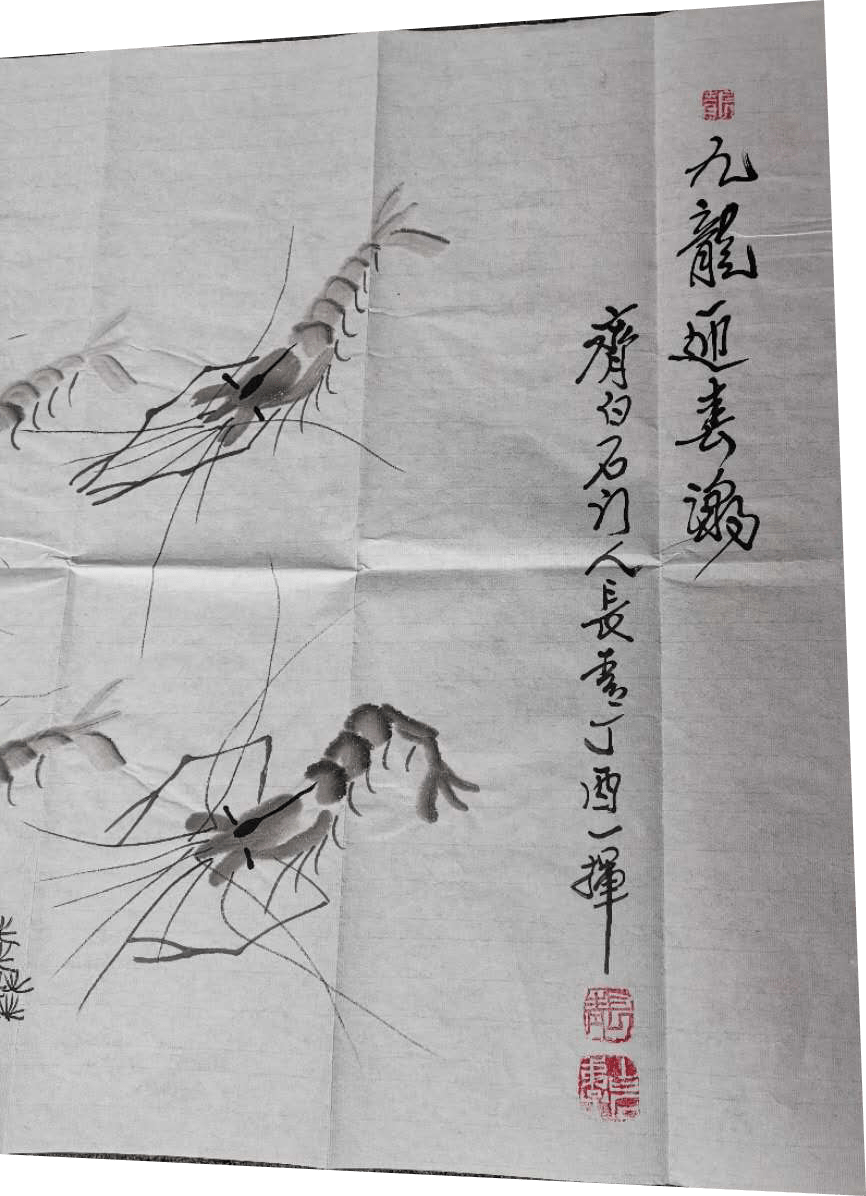 九龍迎春
齊白石门人長青丁酉一揮